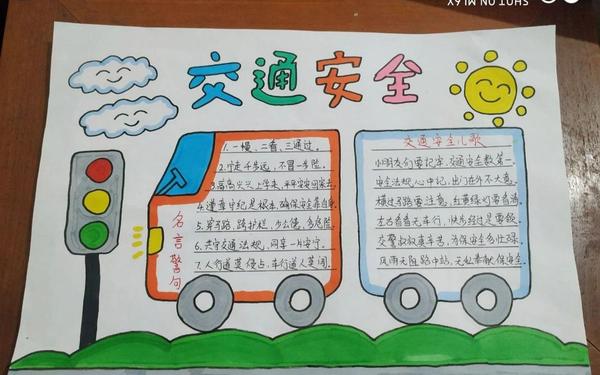 SHOT ON MI 6X
交通安全
1. 一慢、二看、三通过。
2. 宁走千步远,不冒一步险。
3. 高高兴兴上学来,平平安安回家去。
4. 遵章守纪是根本,确保安全靠自身。
5. 穿马路,跨护栏,多么傻,多危险。
6. 共守交通法规,同享一片安宁。
7. 人行道莫侵占,车行道人莫闯。
名言警句
交通安全儿歌
小朋友们要记牢,交通安全数第一。
安全法规心中记,出门在外不大意。
横过马路要注意,红黄绿灯要看清。
左右看看无车行,快步经过是要领。
交警叔叔真辛苦,为保安全多忙碌。
风雨无阻路中站,无私奉献保安全。